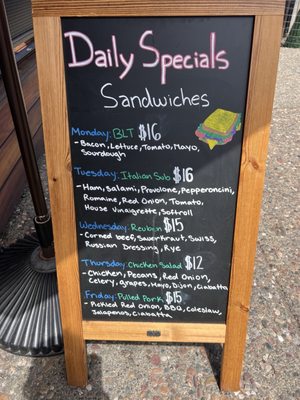 Daily Specials
Sandwiches
Monday: BLT $16
- Bacon, Lettuce, Tomato, Mayo,
Sourdough
Tuesday: Italian Sub $16
- Ham, Salami, Provolone, Pepperoncini,
Romaine, Red Onion, Tomato,
House Vinaigrette, Softroll
Wednesday: Reuben $15
- Corned Beef, Sauerkraut, Swiss,
Russian Dressing, Rye
Thursday: Chicken Salad $12
- Chicken, Pecans, Red Onion,
Celery, grapes, Mayo, Dijon, Ciabatta
Friday: Pulled Pork $15
- Pickled Red Onion, BBQ, Coleslaw,
Jalapenos, Ciabatta